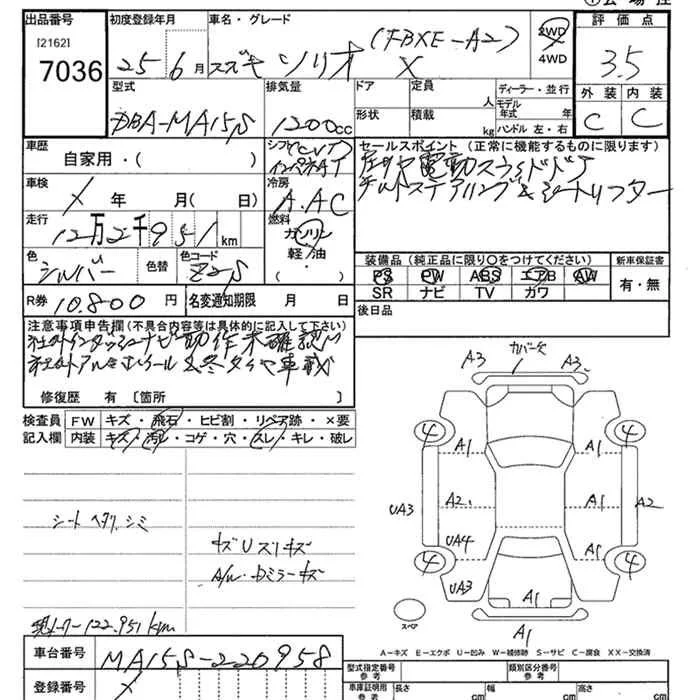 出品番号 初度登録年月 車名・グレード 評価点
[2162]
7036
25 年 6 月 スズキ ソリオ X (FBXE-A2) 2WD 4WD 3.5
外装 内装
C C
型式 排気量 ドア 定員 人 ディーラー・並行
モデル年式 年
DBA-MA15S 1200cc 形状 積載 kg ハンドル 左・右
車歴 自家用・( ) シフト (CVT) インパネAT セールスポイント (正常に機能するものに限ります)
左リヤ電動スライドドア
チルトステアリング & シートリフター
車検 X 年 月( 日) 冷房 A.AC
走行 12万2千951km 燃料 ガソリン 軽油 ・( )
色 シルバー 色替 色コード Z2S
装備品 (純正品に限り○をつけてください) 新車保証書
PS PW ABS エアB AW 有・無
SR ナビ TV カワ
R券 10.800 円 名変通知期限 月 日
後日品
注意事項申告欄 (不具合内容等は具体的に記入して下さい)
社外インダッシュナビ動作未確認
社外アルミホイール & 冬タイヤ車載
修復歴 有 〔箇所 〕
検査員 FW キズ・飛石・ヒビ割・リペア跡・×要
記入欄 内装 キズ・汚レ・コゲ・穴・スレ・キレ・破レ
シート ヘタリ、シミ
キズUスリキズ
A/W・Dミラーキズ
現メーター122.951km
A3 カバー欠 A3
4 A1 A1 4
UA3 A2 A1 A2
UA4 A1
4 UA3 4
A1
スペア
A1
A−キズ E−エクボ U−凹み W−補修跡 S−サビ C−腐食 XX−交換済
車台番号 MA15S-220958
登録番号 X
型式指定番号 参考 類別区分番号 参考
車庫証明用 参考 長さ cm 幅 cm 高さ cm